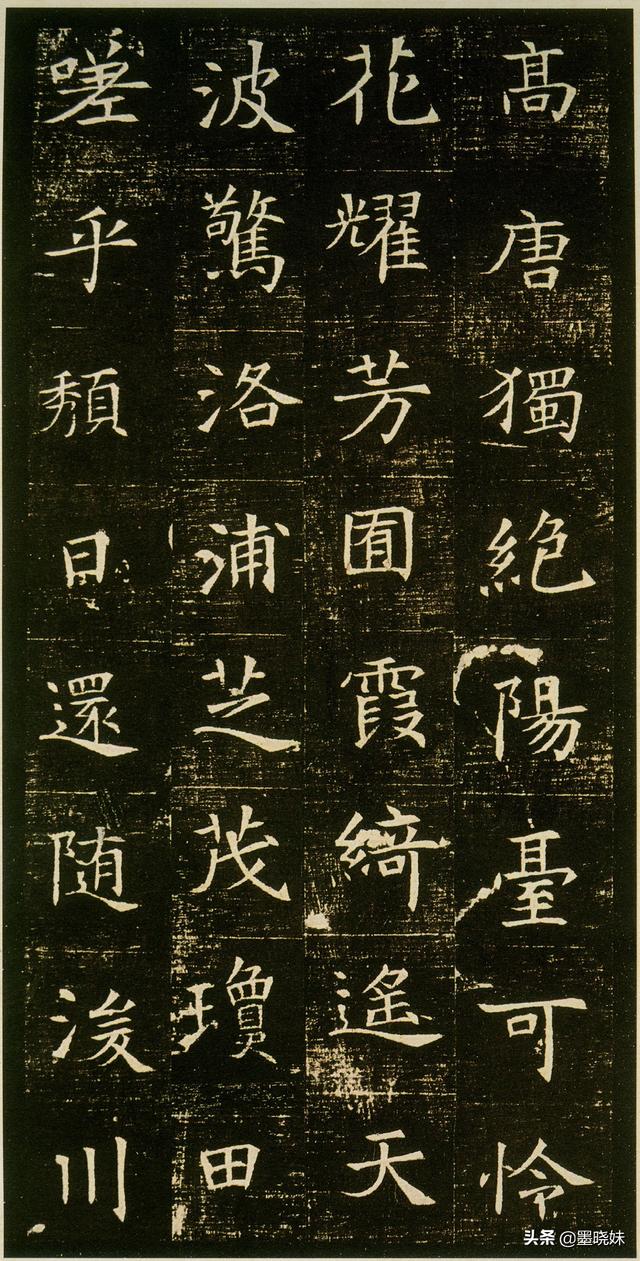 髙唐獨絶陽臺可怜
花耀芳囿霞綺遙天
波驚洛浦芝茂瓊田
嗟乎頽日還随浚川
头条 @墨晓妹